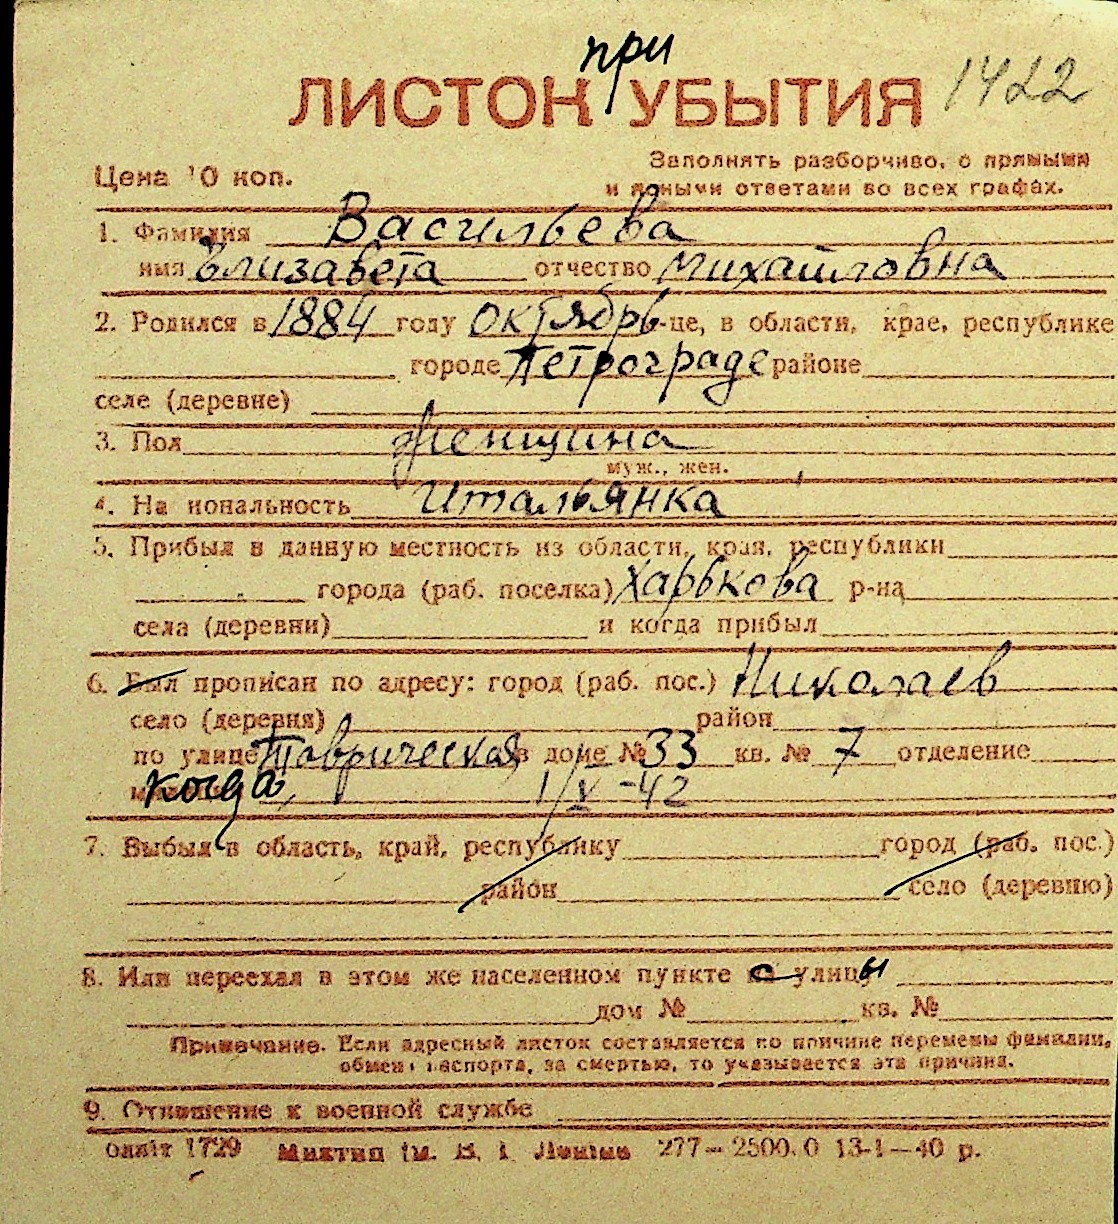 при
ЛИСТОК УБЫТИЯ 1422
Цена 10 коп.
Заполнять разборчиво, с прямыми
и ясными ответами во всех графах.
1. Фамилия Васильева
имя Елизавета отчество Михайловна
2. Родился в 1884 году октябрь-це, в области, крае, республике
городе Петрограде районе
селе (деревне)
3. Пол женщина
муж., жен.
4. Национальность итальянка
5. Прибыл в данную местность из области, края, республики
города (раб. поселка) Харькова р-на
села (деревни) и когда прибыл
6. Был прописан по адресу: город (раб. пос.) Николаев
село (деревня) район
по улице Таврическая в доме № 33 кв. № 7 отделение
когда, 1/V-42
7. Выбыл в область, край, республику город (раб. пос.)
район село (деревню)
8. Или переехал в этом же населенном пункте с улицы
дом № кв. №
Примечание. Если адресный листок составляется по причине перемены фамилии,
обмена паспорта, за смертью, то указывается эта причина.
9. Отношение к военной службе
1729 ім. В. І. Леніна 277—2500.0 13-1—40 р.